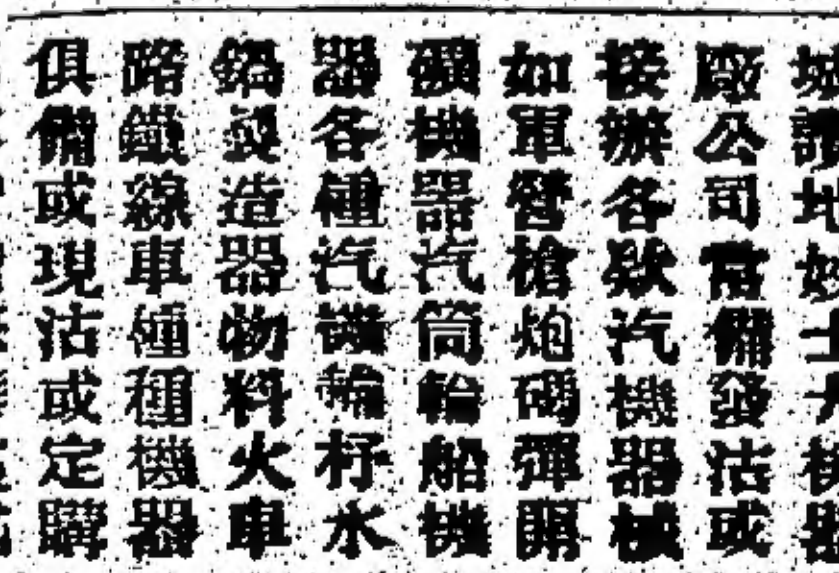 地妙士大機器
廠公司常備發沽或
接辦各欵汽機器械
如軍營槍炮碼彈開
礦機器汽筒輪船機
器各種汽機輪杼水
鍋製造器物料火車
路鐵線車種種機器
俱備或現沽或定購